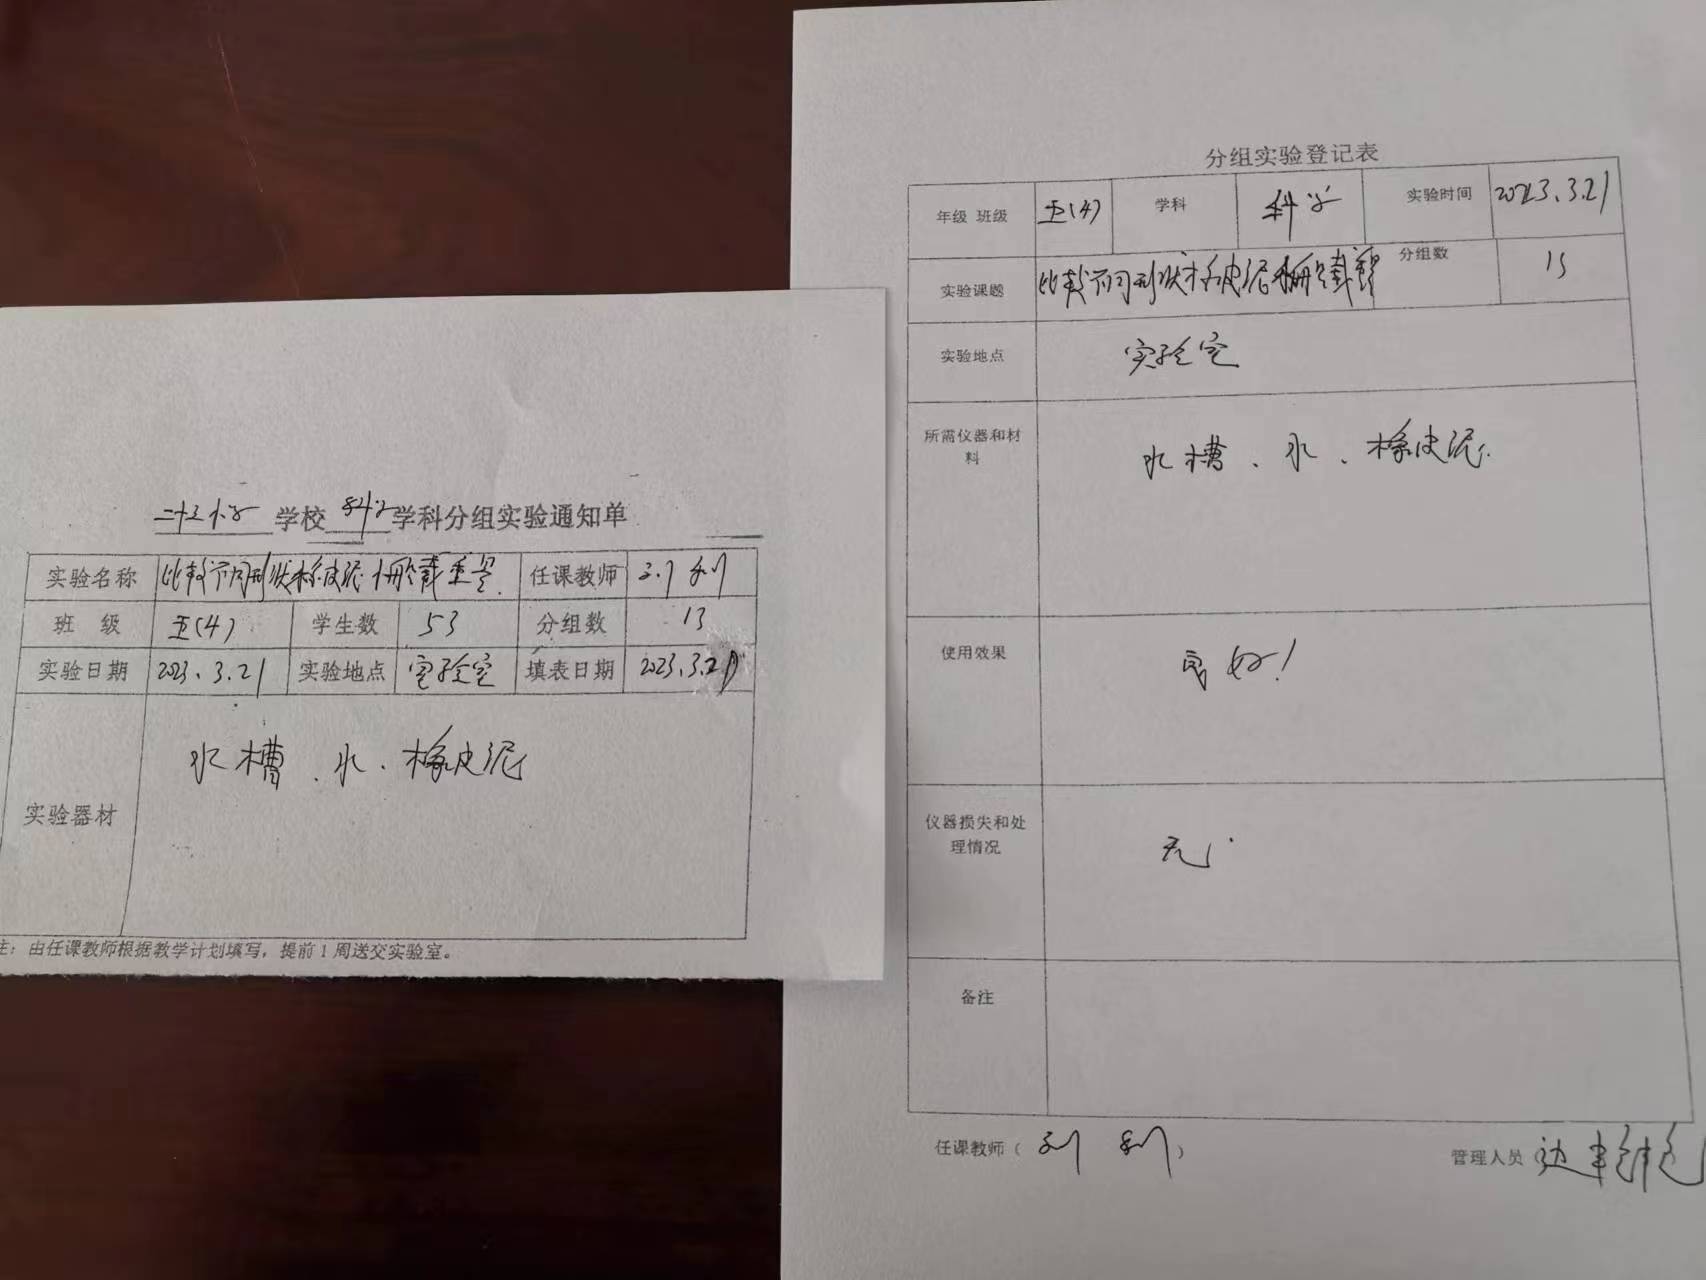 学校 科学 学科分组实验通知单
实验名称 比较不同形状橡皮泥船的载重量 任课教师 刘利
班 级 五(4) 学生数 53 分组数 13
实验日期 2023.3.21 实验地点 实验室 填表日期 2023.3.21
实验器材 水槽、水、橡皮泥
注：由任课教师根据教学计划填写，提前1周送交实验室。
分组实验登记表
年级 班级 五(4) 学科 科学 实验时间 2023.3.21
实验课题 比较不同形状橡皮泥船的载重量 分组数 13
实验地点 实验室
所需仪器和材
料
水槽、水、橡皮泥.
使用效果 良好!
仪器损失和处
理情况
无.
备注
任课教师( 刘 利 ) 管理人员(